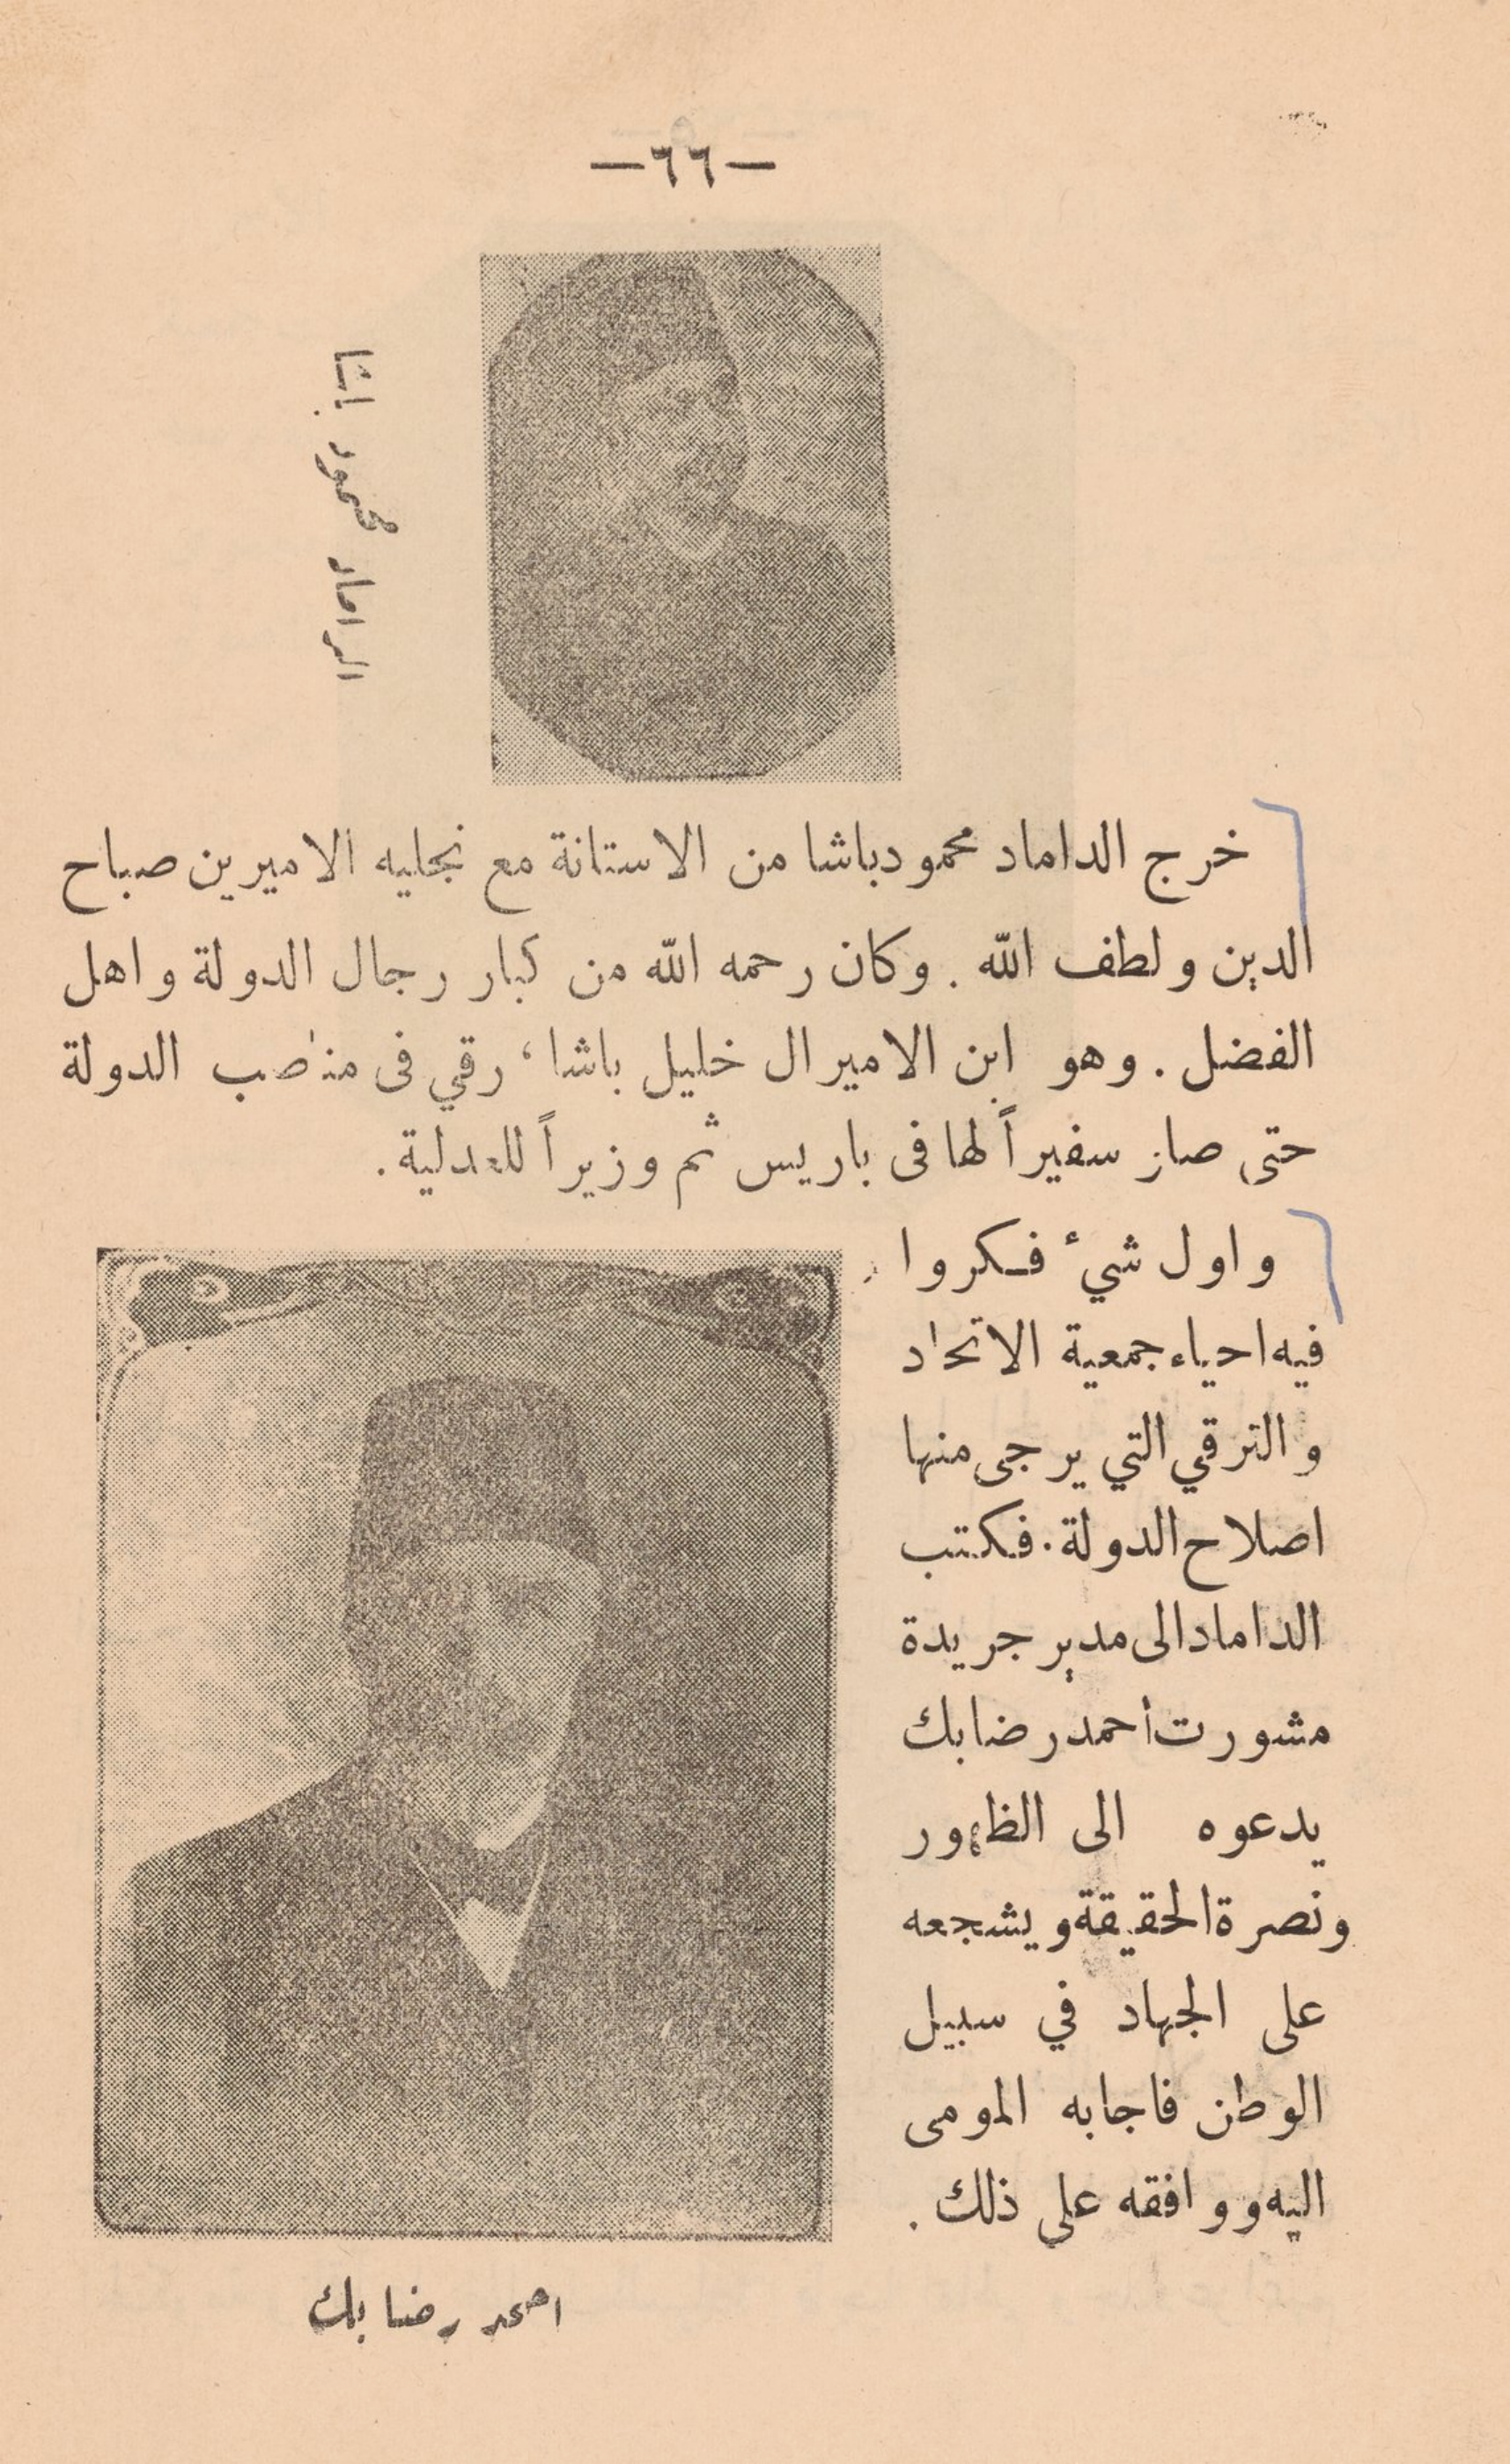 —٦٦—
الداماد محمود باشا
خرج الداماد محمود باشا من الاستانة مع نجليه الاميرين صباح
الدين ولطف الله . وكان رحمه الله من كبار رجال الدولة واهل
الفضل . وهو ابن الاميرال خليل باشا ، رقي فى مناصب الدولة
حتى صار سفيراً لها فى باريس ثم وزيراً للعدلية .
واول شيء فكروا
فيه احياء جمعية الاتحاد
والترقي التي يرجى منها
اصلاح الدولة . فكتب
الداماد الى مدير جريدة
مشورت أحمد رضا بك
يدعوه الى الظهور
ونصرة الحقيقة ويشجعه
على الجهاد في سبيل
الوطن فاجابه المومى
اليه ووافقه على ذلك .
احمد رضا بك